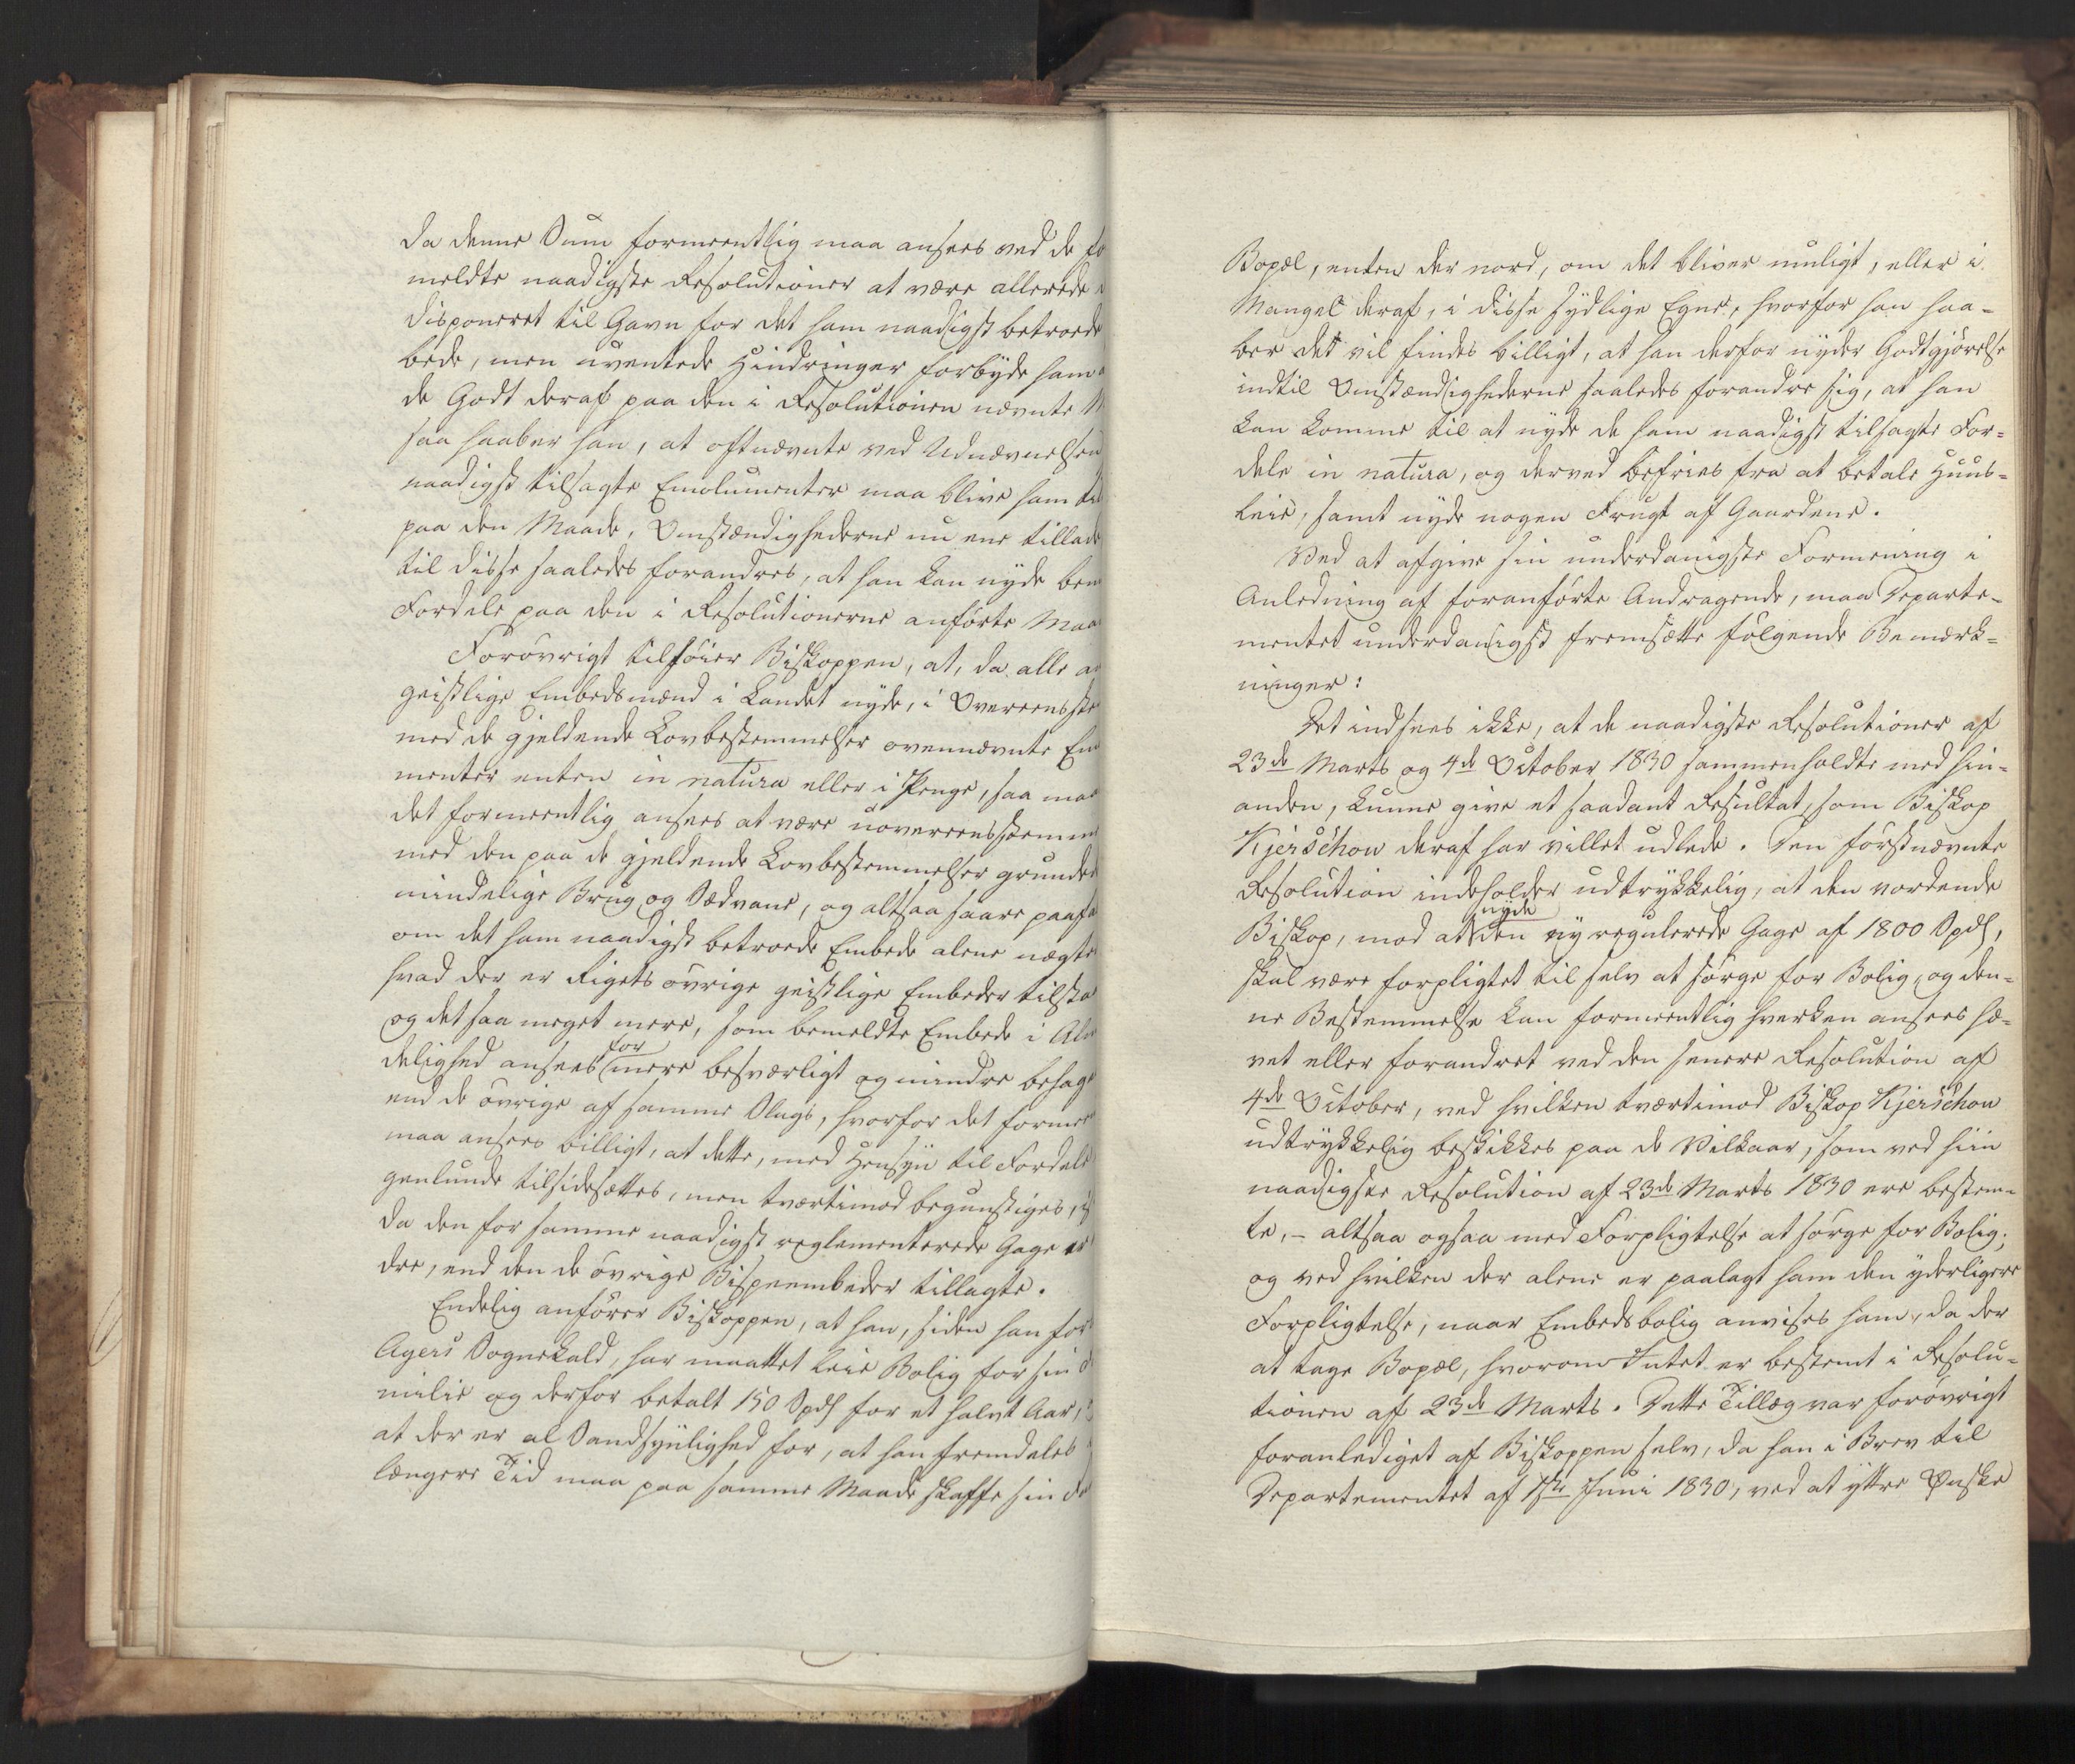 da denne Sum formeentlig maa ansees ved de fo
meldte naadigste Resolutioner at være allerede
disponeret til Gavn for det ham naadigst betroede
bede, men uventede Hindringer forbyde ham
de Godt deraf paa den i Resolutionen nævnte M
saa haaber han, at oftnævnte ved Udnævnelsen
naadigst tilsagte Emolumenter maa blive ham til
paa den Maade, Omstændighederne nu ene tillade
til disse saaledes forandres, at han kan nyde bem
Fordele paa den i Resolutionerne anførte Maa
Forøvrigt tilføier Biskoppen, at, da alle an
geistlige Embedsmænd i Landet nyde, i Overeensste
med de gjeldende Lovbestemmelser ovennævnte Em
menter enten in natura eller i Penge, saa maa
det formeentlig ansees at være uovereensstemme
med den paa de gjeldende Lovbestemmelser grunded
mindelige Brug og Sædvane, og altsaa saare paafa
om det ham naadigst betroede Embede alene nægte
hvad der er Rigets øvrige geistlige Embeder tilstaa
og det saa meget mere, som bemeldte Embede i Alm
delighed ansees for mere besværligt og mindre behage
end de øvrige af samme Slags, hvorfor det formee
maa ansees billigt, at dette, med Hensyn til Fordele
genlunde tilsidesættes, men tværtimod begunstiges, i
da den for samme naadigst reglementerede Gage er
dre, end den de øvrige Bispeembeder tillagte.
Endelig anfører Biskoppen, at han, siden han for
Agers Sognekald, har maattet leie Bolig for sin
milie og derfor betalt 150 Spd for et halvt Aar,
at der er al Sandsynlighed for, at han fremdeles
længere Tid maa paa samme Maade skaffe sin Fa
Bopæl, enten der nord, om det bliver muligt, eller i
Mangel deraf, i disse sydlige Egne, hvorfor han haa-
ber det vil findes billigt, at han derfor nyder Godtgjørelse
indtil Omstændighederne saaledes forandre sig, at han
kan komme til at nyde de ham naadigst tilsagte For-
dele in natura, og derved befries fra at betale Huus-
leie, samt nyde nogen Frugt af Gaardene.
Ved at afgive sin underdanigste Formening i
Anledning af foranførte Andragende, maa Departe-
mentet underdanigst fremsætte følgende Bemærk-
ninger:
Det indsees ikke, at de naadigste Resolutioner af
23de Marts og 4de October 1830 sammenholdte med hin-
anden, kunne give et saadant Resultat, som Biskop
Kjerschow deraf har villet udlede. Den førstnævnte
Resolution indeholder udtrykkelig, at den vordende
Biskop, mod at nyde den ny regulerede Gage af 1800 Spd,
skal være forpligtet til selv at sørge for Bolig, og den-
ne Bestemmelse kan formeentlig hverken ansees hæ-
vet eller forandret ved den senere Resolution af
4de October, ved hvilken tværtimod Biskop Kjerschow
udtrykkelig beskikkes paa de Vilkaar, som ved hiin
naadigste Resolution af 23de Marts 1830 ere bestem-
te, - altsaa ogsaa med Forpligtelse at sørge for Bolig;
og ved hvilken der alene er paalagt ham den yderligere
Forpligtelse, naar Embedsbolig anvises ham, da der
at tage Bopæl, hvorom Intet er bestemt i Resolu-
tionen af 23de Marts. Dette Tillæg var forøvrigt
foranlediget af Biskoppen selv, da han i Brev til
Departementet af 1ste Juni 1830, ved at yttre Ønske